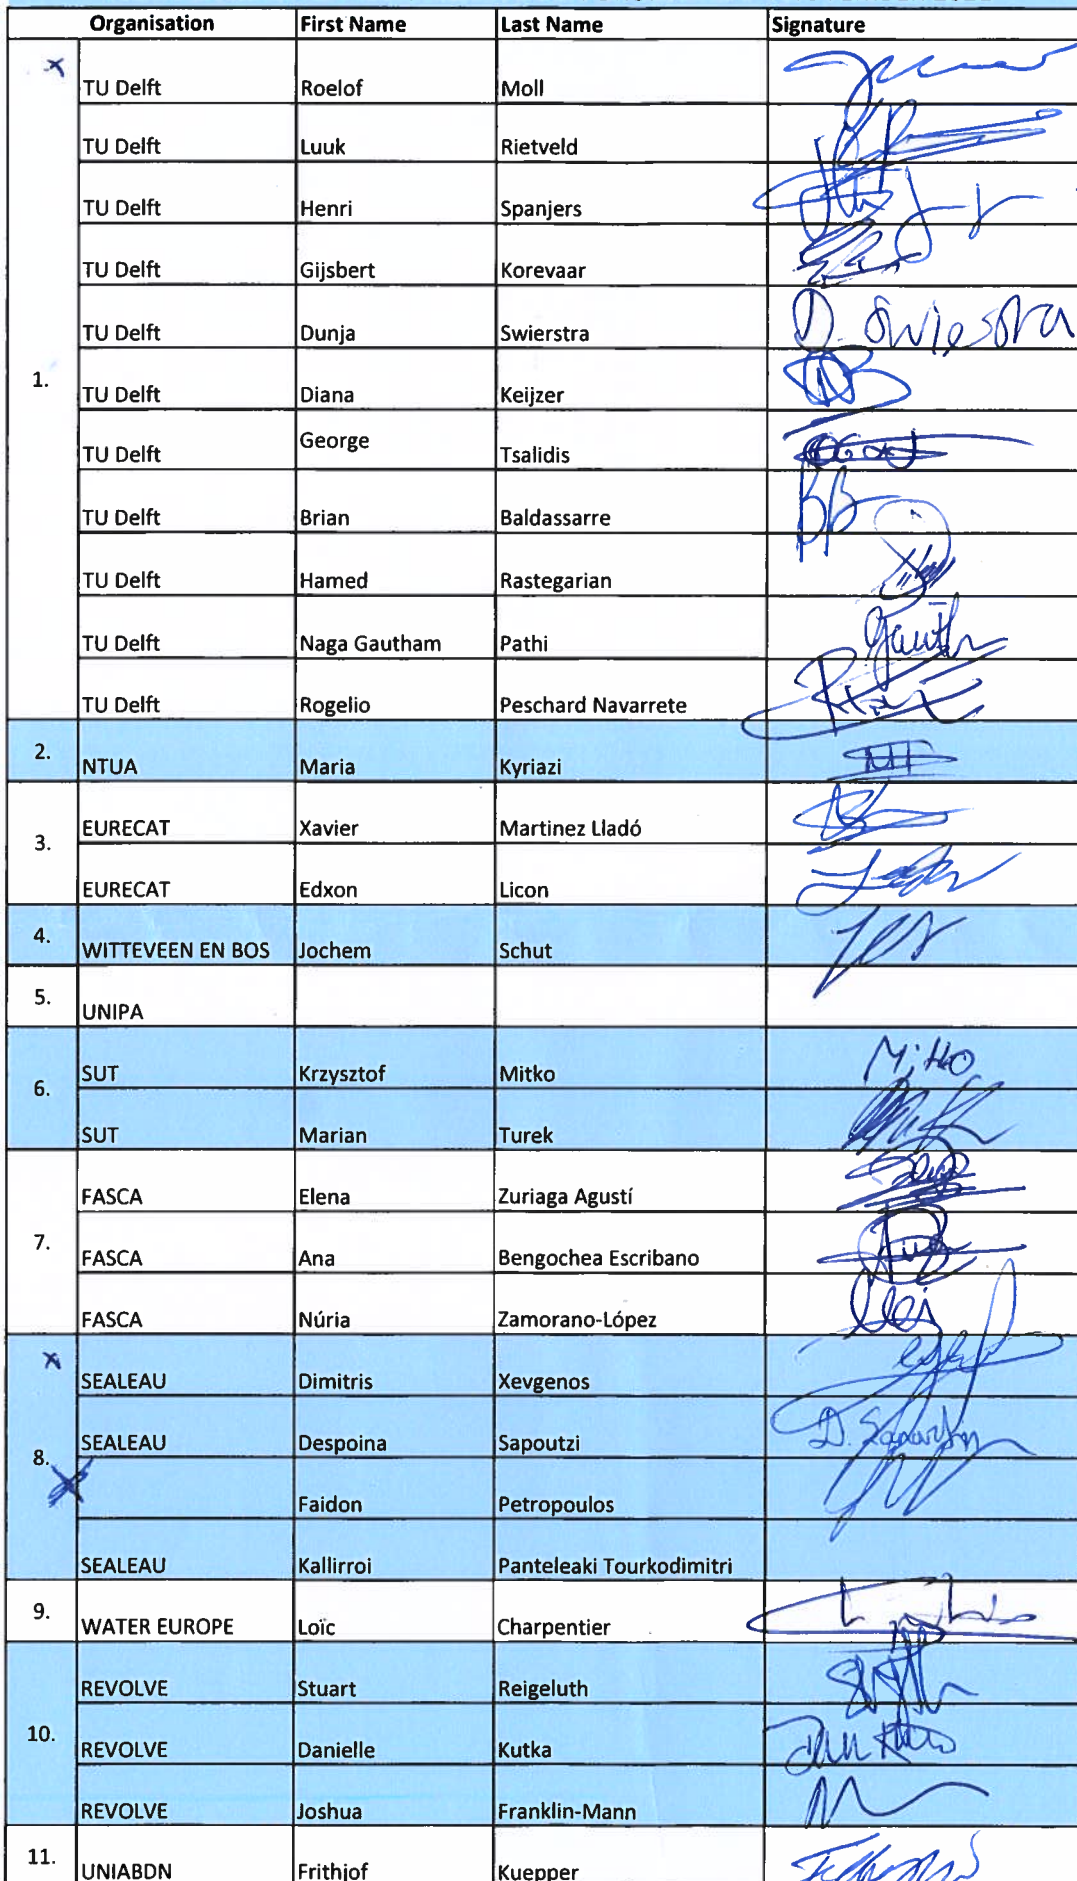 Organisation First Name Last Name Signature
TU Delft Roelof Moll
TU Delft Luuk Rietveld
TU Delft Henri Spanjers
TU Delft Gijsbert Korevaar
TU Delft Dunja Swierstra D. Swiestra
1. TU Delft Diana Keijzer
TU Delft George Tsalidis
TU Delft Brian Baldassarre BB
TU Delft Hamed Rastegarian
TU Delft Naga Gautham Pathi
TU Delft Rogelio Peschard Navarrete
2. NTUA Maria Kyriazi
3. EURECAT Xavier Martinez Lladó
EURECAT Edxon Licon
4. WITTEVEEN EN BOS Jochem Schut
5. UNIPA
6. SUT Krzysztof Mitko Mitko
SUT Marian Turek
7. FASCA Elena Zuriaga Agustí
FASCA Ana Bengochea Escribano
FASCA Núria Zamorano-López
8. SEALEAU Dimitris Xevgenos
SEALEAU Despoina Sapoutzi
Faidon Petropoulos
SEALEAU Kallirroi Panteleaki Tourkodimitri
9. WATER EUROPE Loïc Charpentier
10. REVOLVE Stuart Reigeluth
REVOLVE Danielle Kutka
REVOLVE Joshua Franklin-Mann
11. UNIABDN Frithjof Kuepper